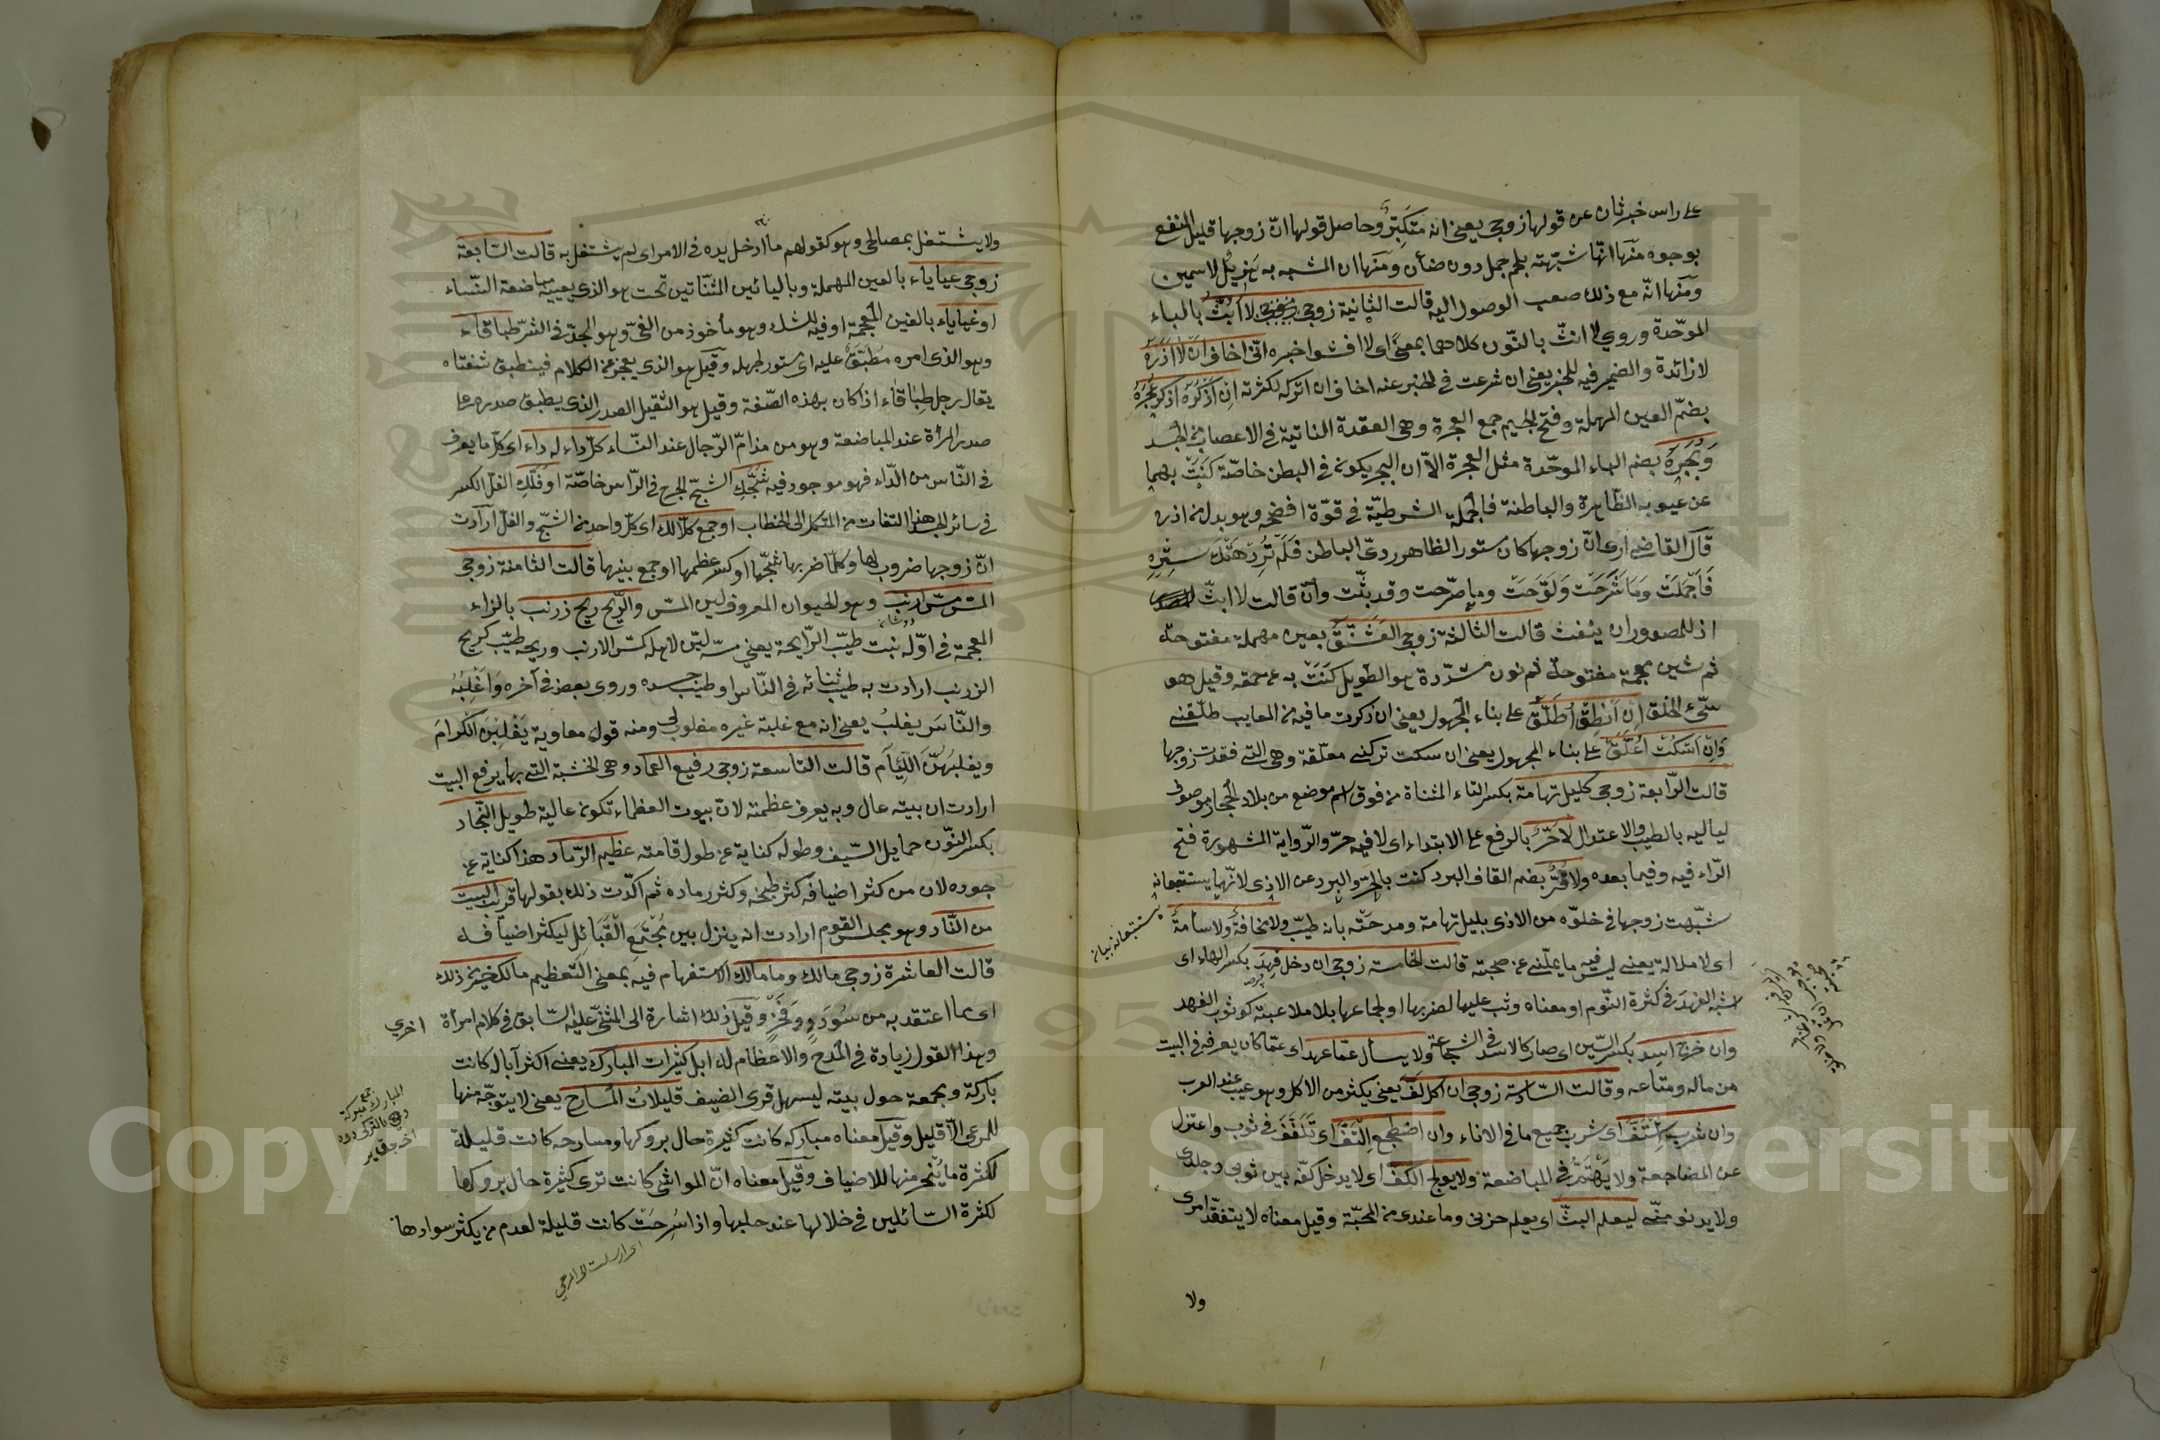 على راس خبر ثان عن قولها زوجي يعني انه متكبر وحاصل قولها انّ زوجها قليل النفع
بوجوه منها انّها شبّهته بلحم جمل دون ضأن ومنها ان المشبه به هزيل لا سمين
ومنها انّه مع ذلك صعب الوصول اليه قالت الثانية زوجي لا ابثّ بالباء
الموحّدة وروي لا انثّ بالنّون كلاهما بمعنى اى لا افشوا خبره انّى اخاف ان لا اذره
لا زائدة والضمير فيه للخبر يعنى ان شرعت في الخبر عنه اخاف ان اتركه لكثرته ان اذكره اذكر عجره
بضمّ العين المهملة وفتح الجيم جمع العجرة وهى العقدة الناتية فى الاعصاب من الجسد
وبجره بضم الباء الموحّدة مثل العجرة الاّ ان البجر يكون فى البطن خاصّة كنت بهما
عن عيوبه الظاهرة والباطنة فالجملة الشرطيّة في قوّة افضحه وهو بدل من اذره
قال القاضى ارى انّ زوجها كان ستور الظاهر ردىّ الباطن فلم ترد هتك ستره
فاجملت وما شرحت ولوّحت وما صرّحت وقد بثّت وان قالت لا ابثّ
اذ للمصدور ان ينفث قالت الثالثة زوجى العشنّق بعين مهملة مفتوحة
ثم شين معجمة مفتوحة ثم نون مشدّدة هو الطويل كنت به عن حمقه وقيل هو
سىّء الخلق ان انطق اطلّق على بناء المجهول يعنى ان ذكرت ما فيه من المعايب طلّقنى
وان اسكت اعلّق على بناء المجهول يعنى ان سكت تركنى معلّقة وهى التى فقدت زوجها
قالت الرّابعة زوجى كليل تهامة بكسر التاء المثناة من فوق اسم موضع من بلاد الحجاز موصوف
لياليه بالطيب والاعتدال لا حرّ بالرفع على الابتداء اى لا فيه حرّ والرّواية المشهورة فتح
الرّاء فيه وفيما بعده ولا قرّ بضم القاف البرد كنت بالحرّ والبرد عن الاذى لانّهما يستتبعانه
شبّهت زوجها فى خلوّه من الاذى بليل تهامة ومدحته بانه طيّب ولا مخافة ولا سأمة
اى لا ملالة يعنى ليس فيه ما يملّنى عن صحبته قالت الخامسة زوجى ان دخل فهد بكسر الهاء اى
اشبه الفهد فى كثرة النّوم او معناه وثب عليها لضربها او لجماعها بلا ملاعبة كوثوب الفهد
وان خرج اسد بكسر السّين اى صار كالاسد فى الشجاعة ولا يسأل عمّا عهد اى عمّا كان يعرفه فى البيت
من ماله ومتاعه وقالت السّادسة زوجى ان اكل لفّ يعنى يكثر من الاكل وهو عيب عند العرب
وان شرب اشتفّ اى شرب جميع ما فى الاناء وان اضطجع التفّ اى تلفّف فى ثوب واعتزل
عن المضاجعة ولا يهتمّ فى المباضعة ولا يولج الكفّ اى لا يدخل كفّه بين ثوبى وجلدى
ولا يدنو منّى ليعلم البثّ اى يعلم حزنى وما عندى من المحبّة وقيل معناه لا يتفقّد امرى
ولا
ولا يشتغل بمصالحى وهو كقولهم ما ادخل يده فى الامر اى لم يشتغل به قالت السّابعة
زوجى عياياء بالعين المهملة وباليائين المثنّاتين تحت هو الذى يعييه مباضعة النّساء
او غياياء بالغين المعجمة او فيه للشك وهو مأخوذ من الغىّ وهو الجدّ فى الشرّ طباقاء
وهو الذى امره مطبق عليه اى مستور لجهله وقيل هو الذى يعجز عن الكلام فينطبق شفتاه
يقال رجل طباقاء اذا كان بهذه الصّفة وقيل هو الثقيل الصدر الذى يطبق صدره على
صدر المرأة عند المباضعة وهو من مذامّ الرّجال عند النساء كلّ داء له داء اى كلّ ما يعرف
فى النّاس من الدّاء فهو موجود فيه شجّك الشجّ الجرح فى الرّاس خاصّة او فلّك الفلّ الكسر
فى سائر الجسد هذا التفات من المتكلم الى الخطاب او جمع كلاّ لك اى كلّ واحد من الشجّ والفلّ ارادت
انّ زوجها ضروب لها وكلّما ضربها شجّها او كسر عظمها او جمع بينهما قالت الثامنة زوجى
المسّ مسّ ارنب وهو الحيوان المعروف لين المسّ والرّيح ريح زرنب بالزاء
المعجمة فى اوّله نبت طيّب الرّايحة يعنى مسّه ليّن لاهله كمسّ الارنب وريحه طيّب كريح
الزرنب ارادت به طيب ثنائه فى النّاس او طيب جسده وروى بعض فى آخره واغلبه
والنّاس يغلب يعنى انه مع غلبة غيره مغلوب لى ومنه قول معاوية يغلبن الكرام
ويغلبهنّ اللئام قالت التاسعة زوجى رفيع العماد وهى الخشبة التى بها يرفع البيت
ارادت ان بيته عال وبه يعرف عظمته لانّ بيوت العظماء تكون عالية طويل النّجاد
بكسر النّون حمايل السّيف وطوله كناية عن طول قامته عظيم الرّماد هذا كناية عن
جوده لان من كثر اضيافه كثر طبخه وكثر رماده ثم اكّدت ذلك بقولها قريب البيت
من النّاد وهو مجلس القوم ارادت انه ينزل بين مجتمع القبائل ليكثر اضيافه
قالت العاشرة زوجى مالك وما مالك الاستفهام فيه بمعنى التّعظيم مالك خير من ذلك
اى مما اعتقد به من سؤدد وفخر وقيل ذلك اشارة الى المثنى عليه السّابق فى كلام امرأة اخرى
وهذا القول زيادة فى المدح والاعظام له ابل كثيرات المبارك يعنى اكثر آباله كانت
باركة ومجمعة حول بيته ليسهل قرى الضيف قليلات المسارح يعنى لا يتوجّه منها
للمرعى الاّ قليل وقيل معناه مباركه كانت كثيرة حال بروكها ومسارحه كانت قليلة
لكثرة ما ينحر منها للاضياف وقيل معناه انّ المواشى كانت ترى كثيرة حال بروكها
لكثرة السّائلين فى خلالها عند حلبها واذا سرحت كانت قليلة لعدم من يكثر سوادها
Copyright © King Saud University